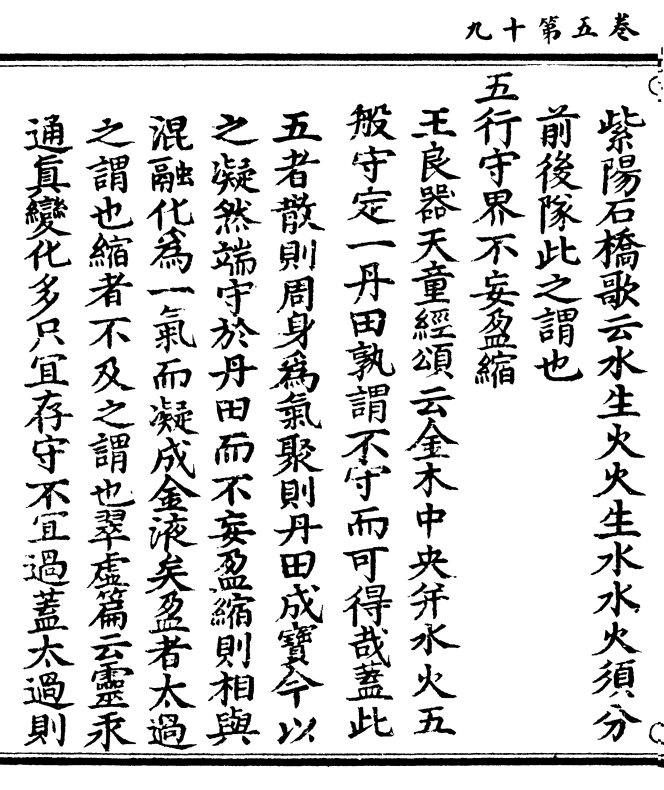 卷五第十九
紫陽石橋歌云水生火火生水水火須分
前後隊此之謂也
五行守界不妄盈縮
王良器天童經頌云金木中央并水火五
般守定一丹田孰謂不守而可得哉蓋此
五者散則周身爲氣聚則丹田成寶今以
之凝然端守於丹田而不妄盈縮則相與
混融化爲一氣而凝成金液矣盈者太過
之謂也縮者不及之謂也翠虛篇云靈汞
通眞變化多只宜存守不宜過蓋太過則